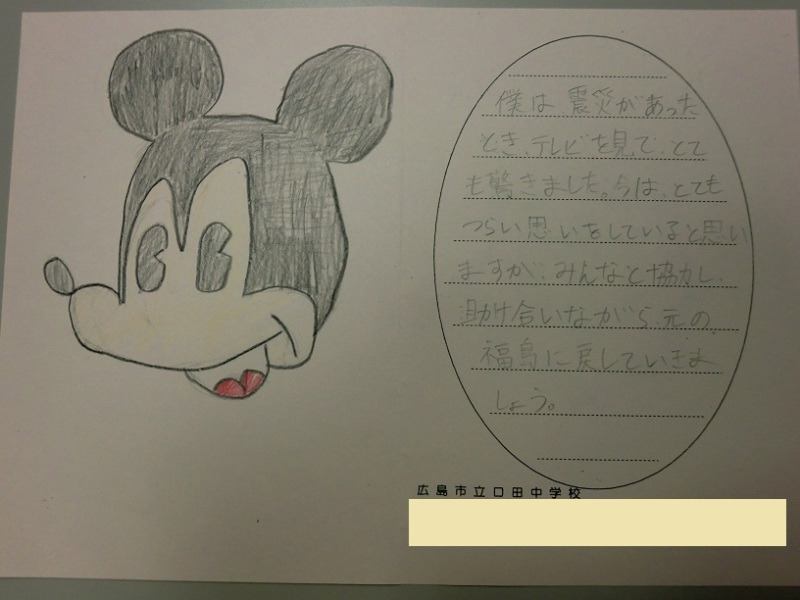 僕は震災があった
とき、テレビを見て、とて
も驚きました。今は、とても
つらい思いをしていると思い
ますが、みんなと協力し、
助け合いながら、元の
福島に戻していきま
しょう。
広島市立口田中学校